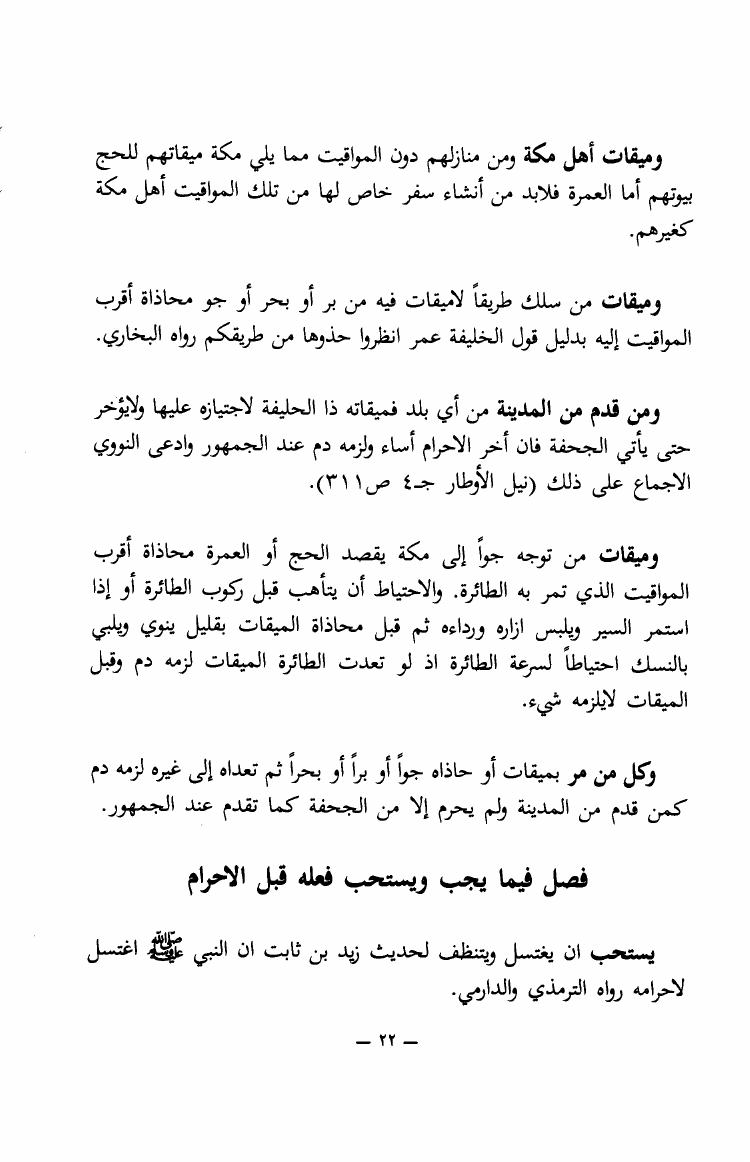 وميقات أهل مكة ومن منازلهم دون المواقيت مما يلي مكة ميقاتهم للحج
بيوتهم أما العمرة فلابد من أنشاء سفر خاص لها من تلك المواقيت أهل مكة
كغيرهم.
وميقات من سلك طريقاً لاميقات فيه من بر أو بحر أو جو محاذاة أقرب
المواقيت إليه بدليل قول الخليفة عمر انظروا حذوها من طريقكم رواه البخاري.
ومن قدم من المدينة من أي بلد فميقاته ذا الحليفة لاجتيازه عليها ولايؤخر
حتى يأتي الجحفة فان أخر الاحرام أساء ولزمه دم عند الجمهور وادعى النووي
الاجماع على ذلك (نيل الأوطار جـ٤ ص٣١١).
وميقات من توجه جواً إلى مكة يقصد الحج أو العمرة محاذاة أقرب
المواقيت الذي تمر به الطائرة. والاحتياط أن يتأهب قبل ركوب الطائرة أو إذا
استمر السير ويلبس ازاره ورداءه ثم قبل محاذاة الميقات بقليل ينوي ويلبي
بالنسك احتياطاً لسرعة الطائرة اذ لو تعدت الطائرة الميقات لزمه دم وقبل
الميقات لايلزمه شيء.
وكل من مر بميقات أو حاذاه جواً أو براً أو بحراً ثم تعداه إلى غيره لزمه دم
كمن قدم من المدينة ولم يحرم إلا من الجحفة كما تقدم عند الجمهور.
فصل فيما يجب ويستحب فعله قبل الاحرام
يستحب ان يغتسل ويتنظف لحديث زيد بن ثابت ان النبي ﷺ اغتسل
لاحرامه رواه الترمذي والدارمي.
— ٢٢ —